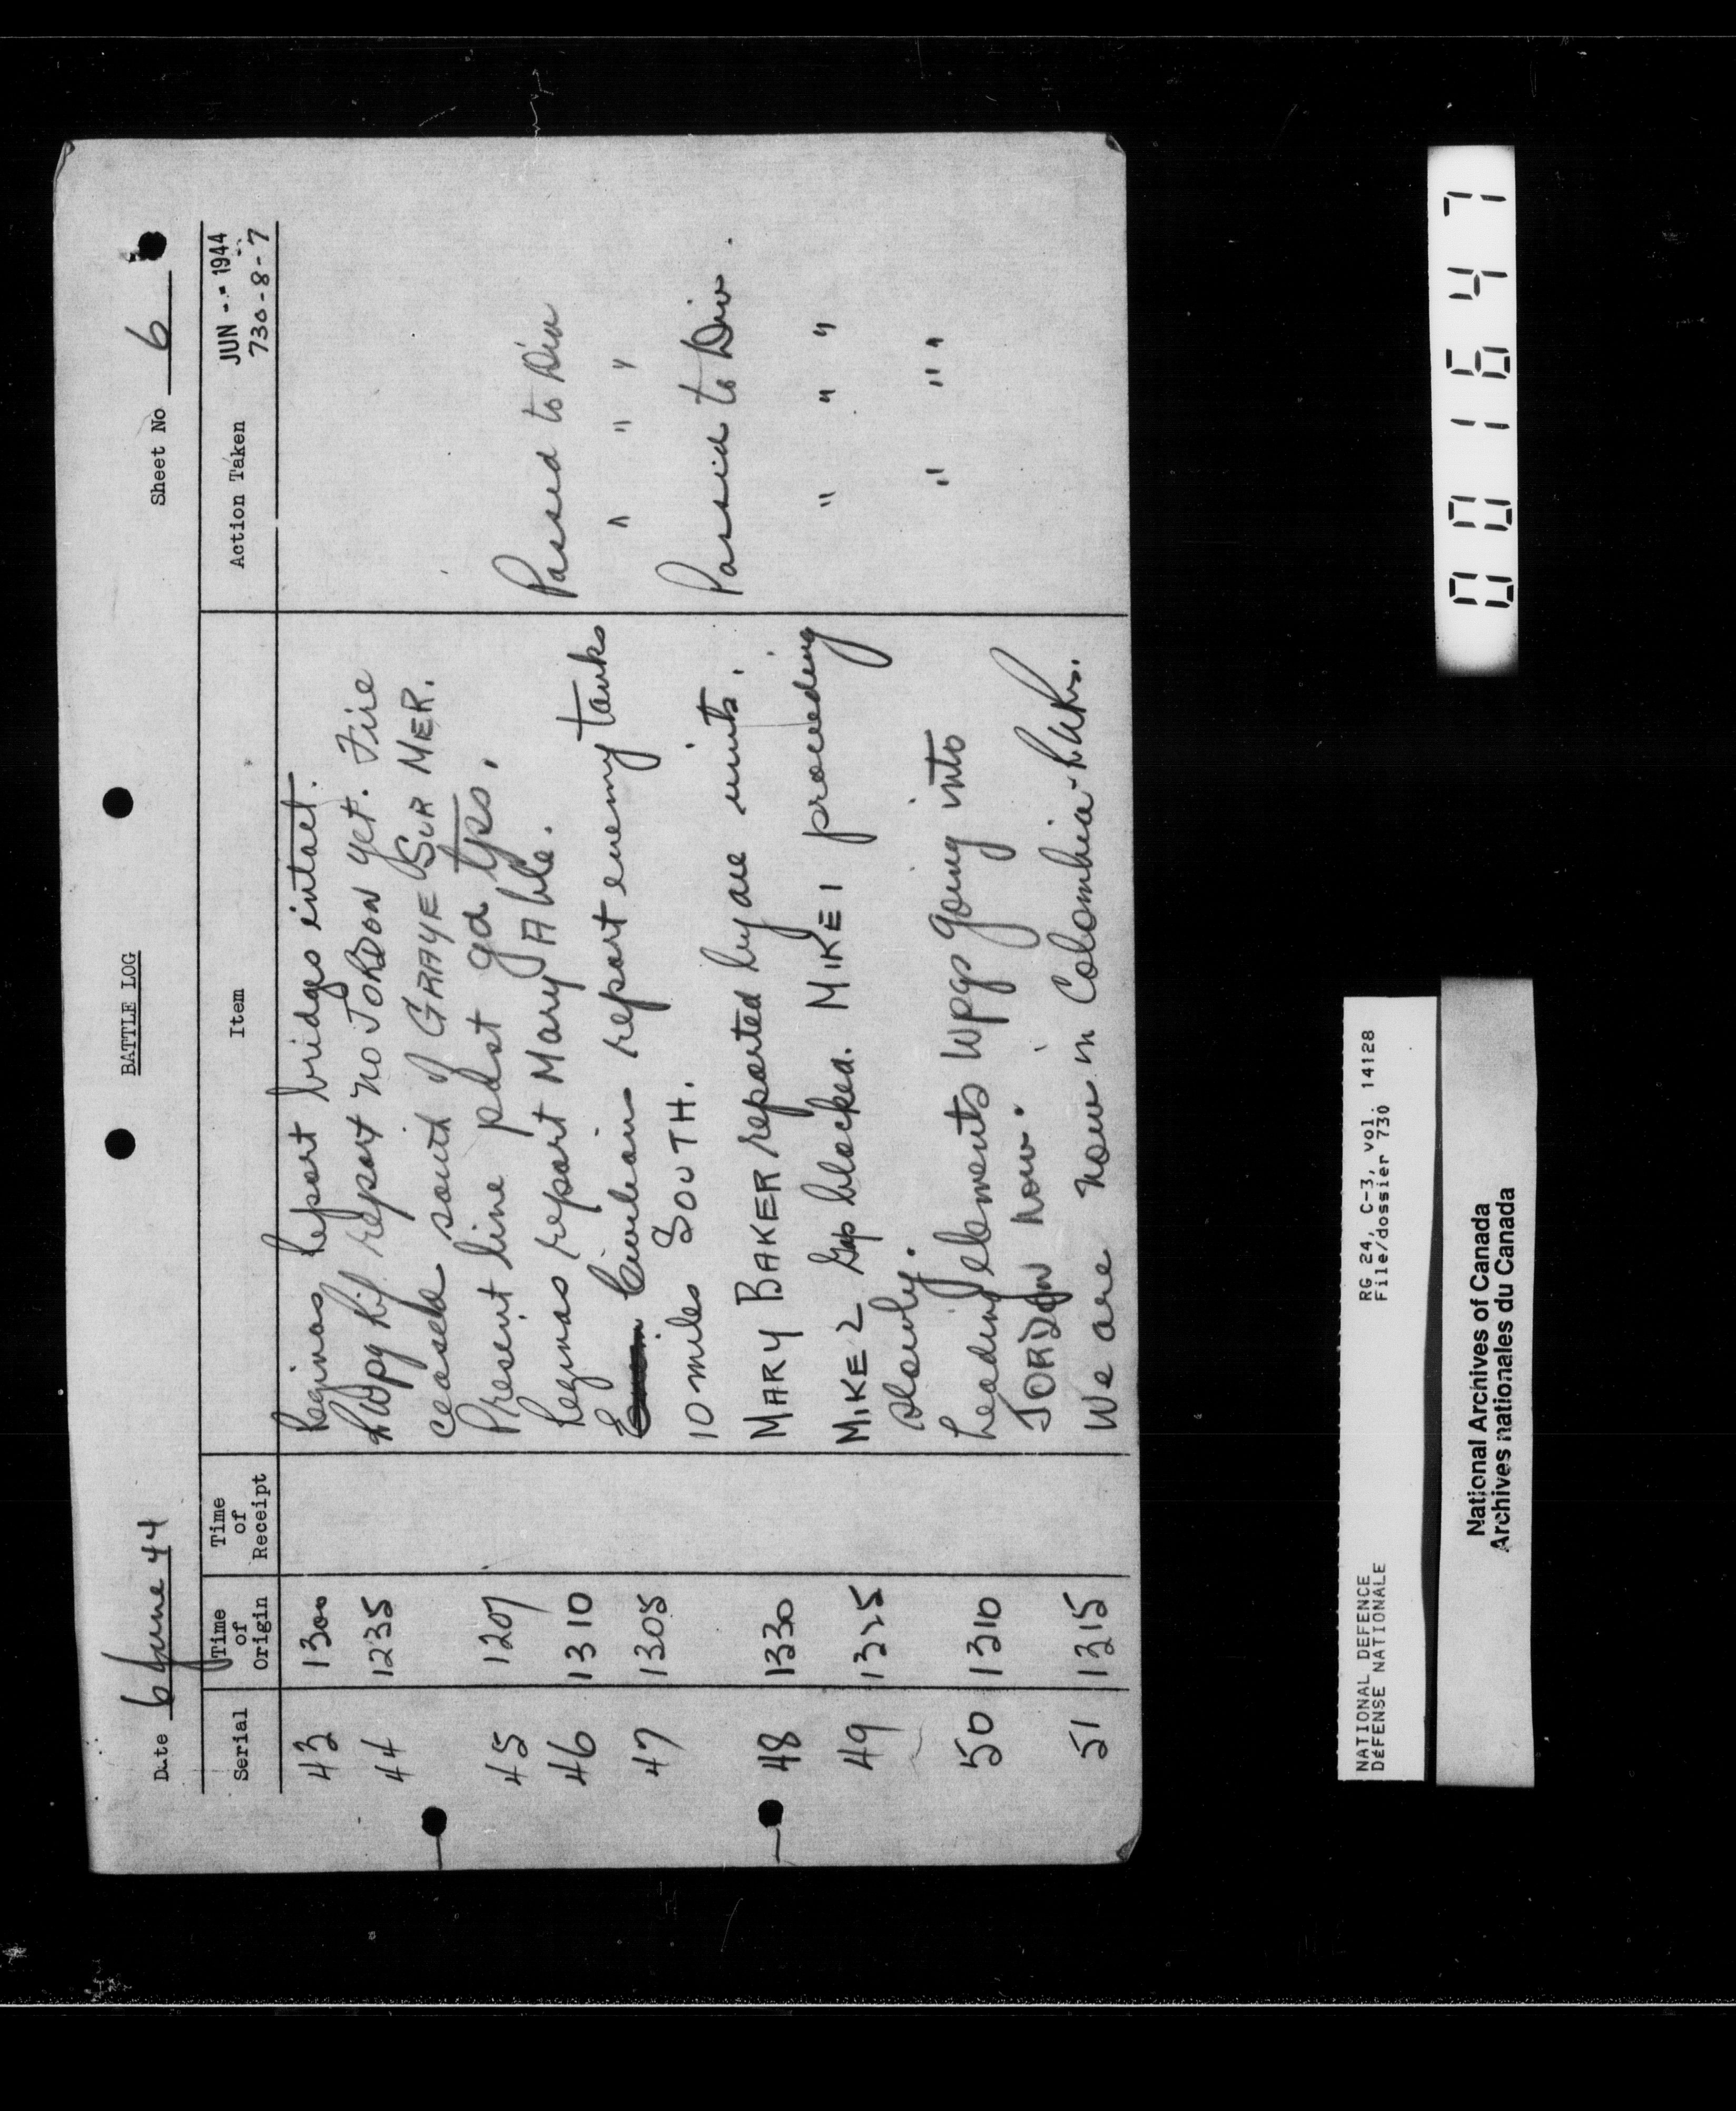 BATTLE LOG
Date 6 June 44
Sheet No 6
Serial Time of Origin Time of Receipt Item Action Taken JUN -- 1944
730-8-7
43 1300 Reginas report bridges intact.
44 1235 R Wpg Rif report no JORDON yet. Fire
ceased south of GRAYE SUR MER.
45 1207 Present line past gd tps.
46 1310 Reginas report Mary Able. Passed to Div
47 1305 Civilians report enemy tanks " " "
10 miles SOUTH. Passed to Div.
48 1330 MARY BAKER reported by are units.
49 1325 MIKE 2 Gap blocked. MIKE 1 proceeding " " "
slowly.
50 1310 Leading elements Wpgs going into " " "
JORDON now.
51 1315 We are now in Colombia
0001647
NATIONAL DEFENCE RG 24, C-3, vol. 14128
DÉFENSE NATIONALE File/dossier 730
National Archives of Canada
Archives nationales du Canada